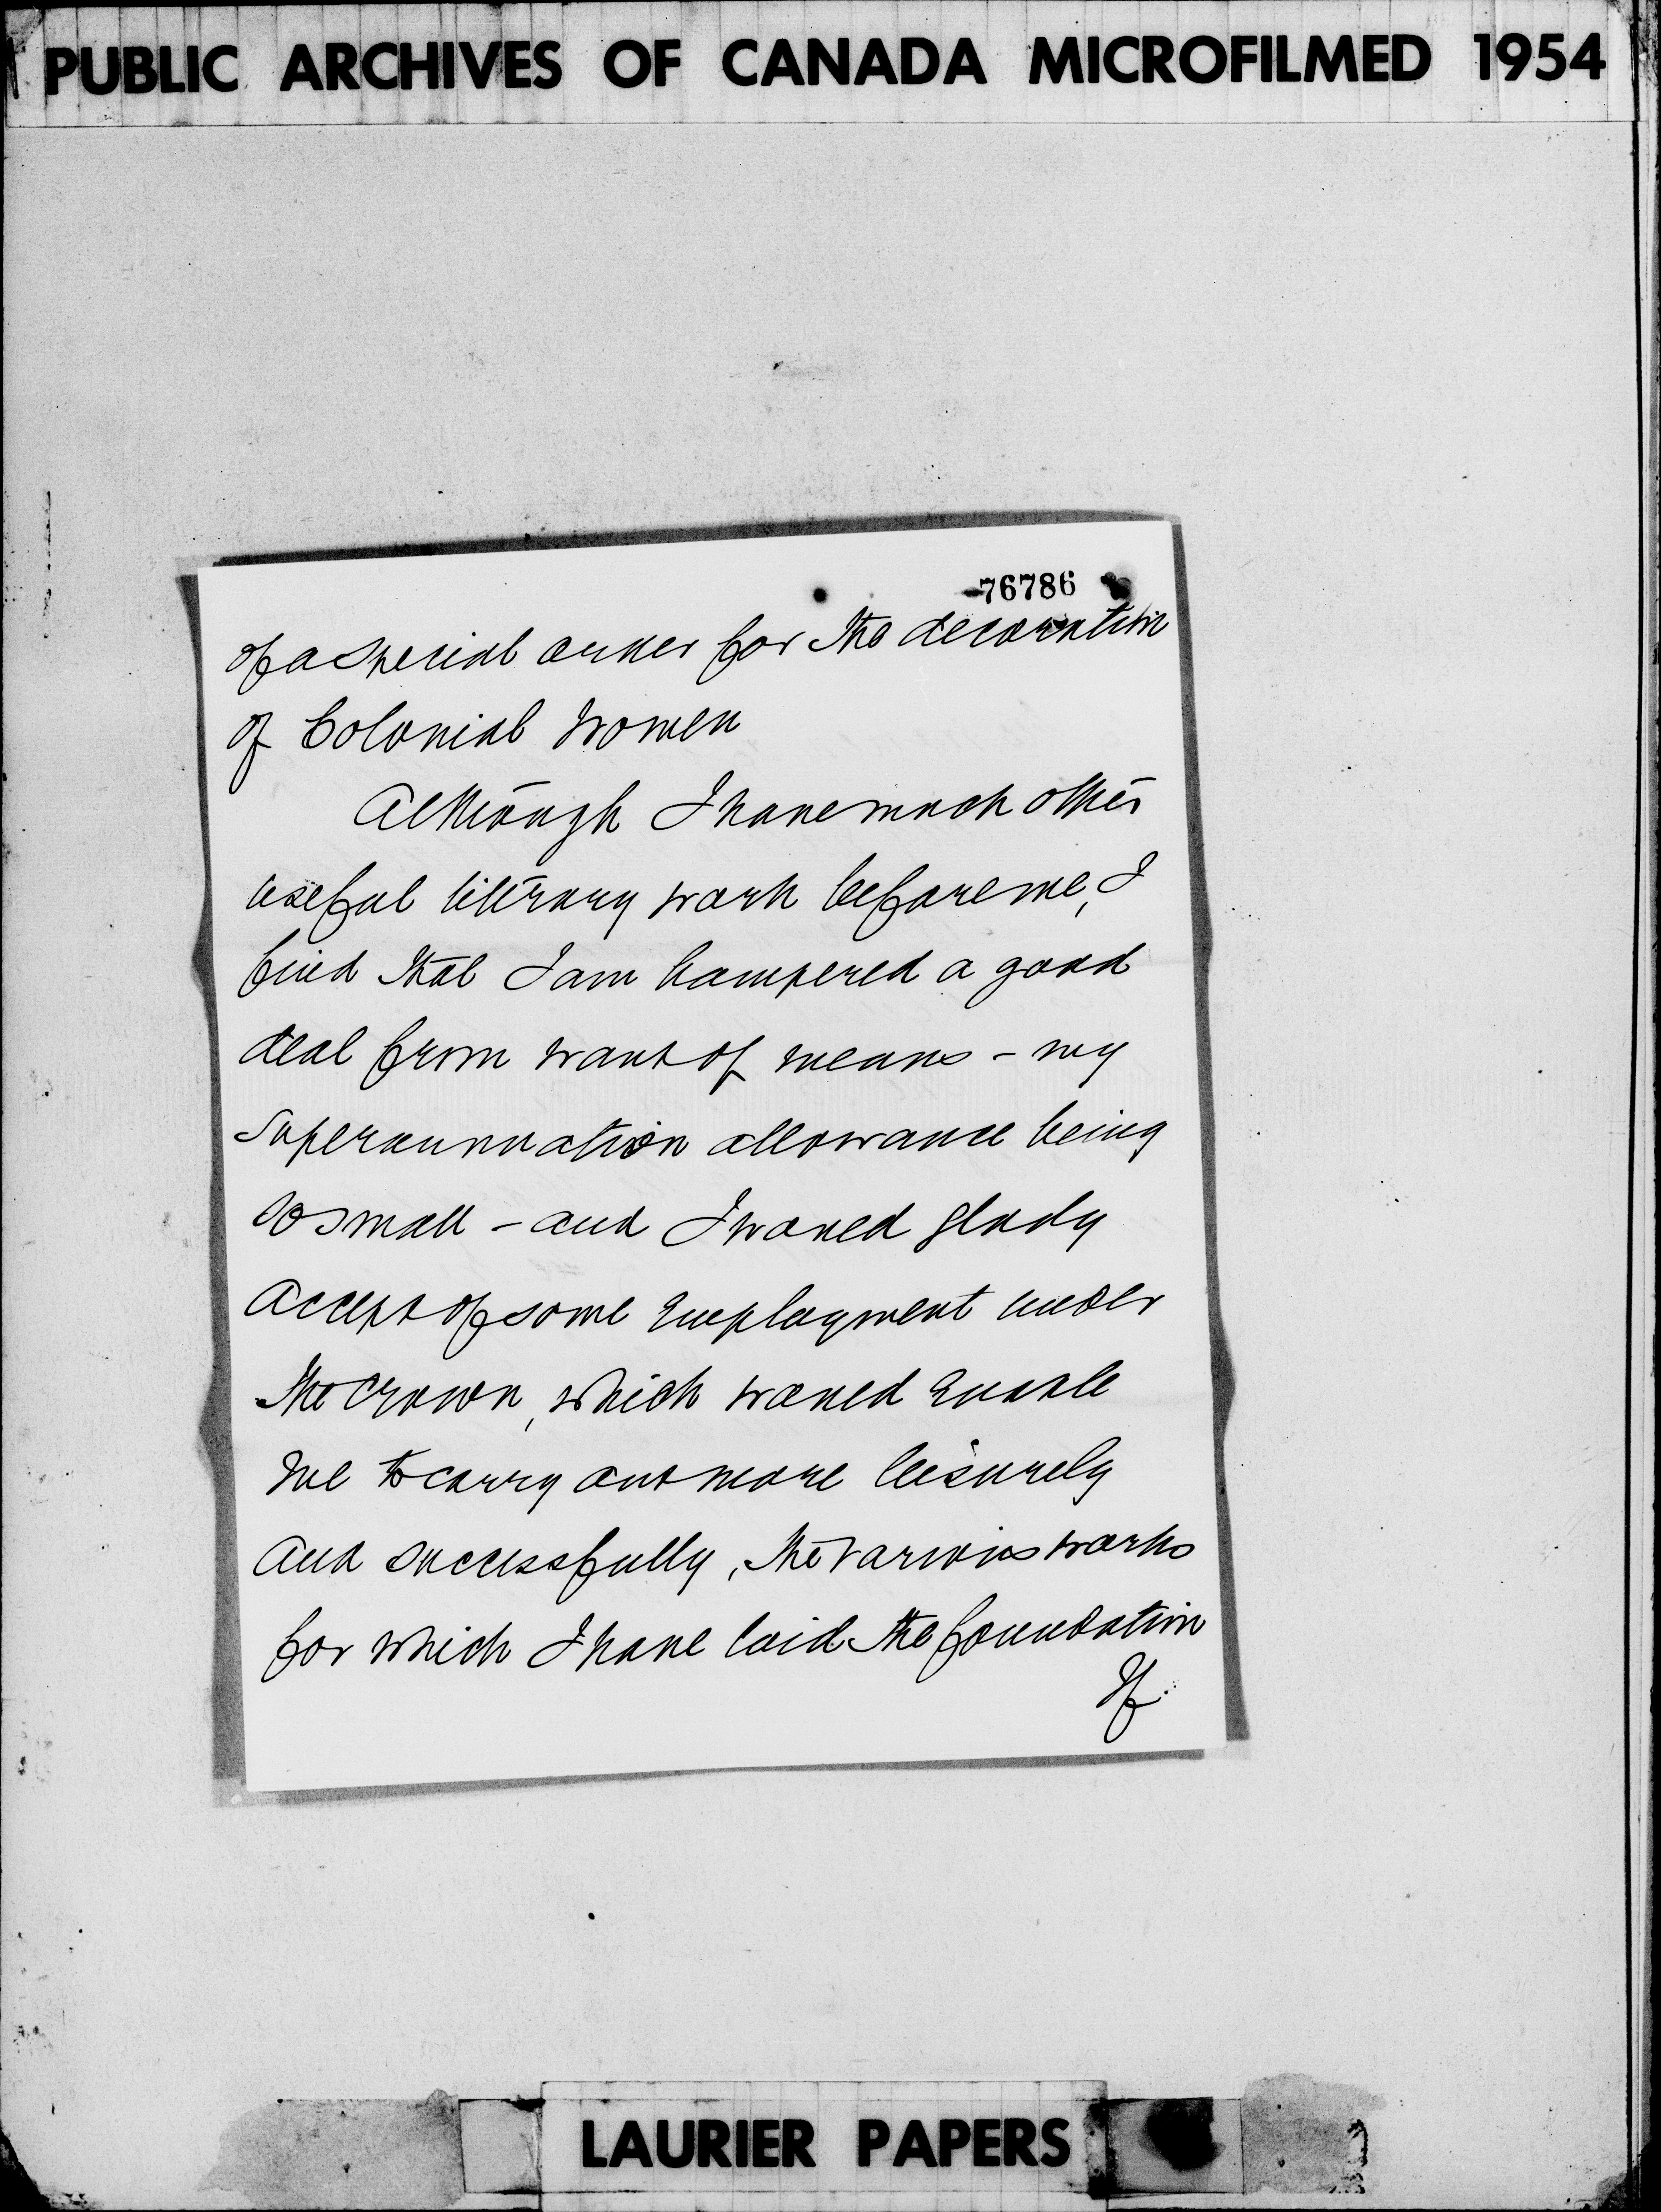 PUBLIC ARCHIVES OF CANADA MICROFILMED 1954
76786
of a special order for the decoration
of Colonial Women
Although I have much other
useful literary work before me, I
find that I am hampered a good
deal from want of means - my
superannuation allowance being
so small - and I would glady
accept of some employment under
the Crown, which would enable
me to carry out more leisurely
and successfully, the various works
for which I have laid the foundation
If
LAURIER PAPERS